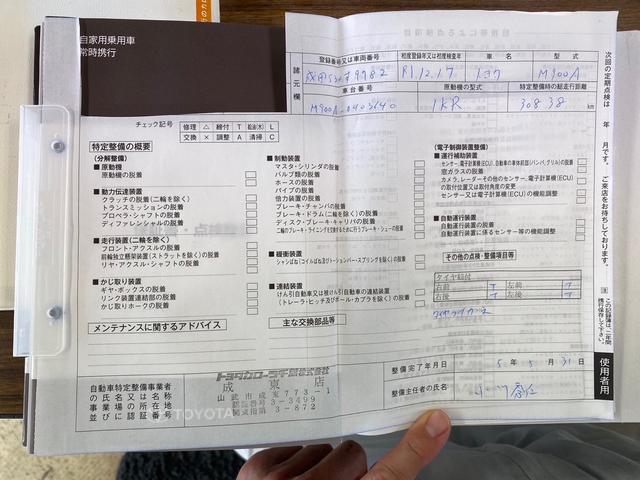 自家用乗用車
常時携行
諸元欄
登録番号又は車両番号
初度登録年又は初度検査年
車名
型式
R1.12.17
トヨタ
M900A
車台番号
原動機の型式
特定整備時の総走行距離
1KR
30838 km
チェック記号
修理 △ 締付 T 給油(水) L
交換 × 調整 A 清掃 C
特定整備の概要
(分解整備)
■原動機
原動機の脱着
■動力伝達装置
クラッチの脱着(二輪を除く)
トランスミッションの脱着
プロペラ・シャフトの脱着
ディファレンシャルの脱着
■走行装置(二輪を除く)
フロント・アクスルの脱着
前輪独立懸架装置(ストラットを除く)の脱着
リヤ・アクスル・シャフトの脱着
■かじ取り装置
ギヤ・ボックスの脱着
リンク装置連結部の脱着
かじ取りホークの脱着
■制動装置
マスタ・シリンダの脱着
バルブ類の脱着
ホースの脱着
パイプの脱着
倍力装置の脱着
ブレーキ・チャンバの脱着
ブレーキ・ドラム(二輪を除く)の脱着
ディスク・ブレーキ・キャリパの脱着
二輪のブレーキ・ライニングを交換するために行うブレーキ・シューの脱着
■緩衝装置
シャシばね(コイルばね及びトーションバー・スプリングを除く)の脱着
■連結装置
けん引自動車又は被けん引自動車の連結装置
(トレーラ・ヒッチ及びボール・カプラを除く)の脱着
(電子制御装置整備)
■運行補助装置
センサー、電子計算機(ECU)、自動車の車体前部(バンパ、グリル)の脱着
窓ガラスの脱着
カメラ、レーダーその他のセンサー、電子計算機(ECU)
の取付位置又は取付角度の変更
センサー又は電子計算機(ECU)の機能調整
■自動運行装置
自動運行装置の脱着
自動運行装置に係るセンサー等の機能調整
その他の点検・整備項目等
タイヤ締付
右前 T 左前 T
右後 T 左後 T
メンテナンスに関するアドバイス
主な交換部品等
自動車特定整備事業者
の氏名又は名称
事業場の所在地
並びに認証番号
トヨタカローラ千葉株式会社
成東店
山武市成東773-1
認証番号 3-3499
3-872
TOYOTA
整備完了年月日
5年5月31日
整備主任者の氏名
次回の定期点検は 年 月です。ご来店をお待ちしております。
注 この記録簿は、二年間携行保存して下さい。
使用者用